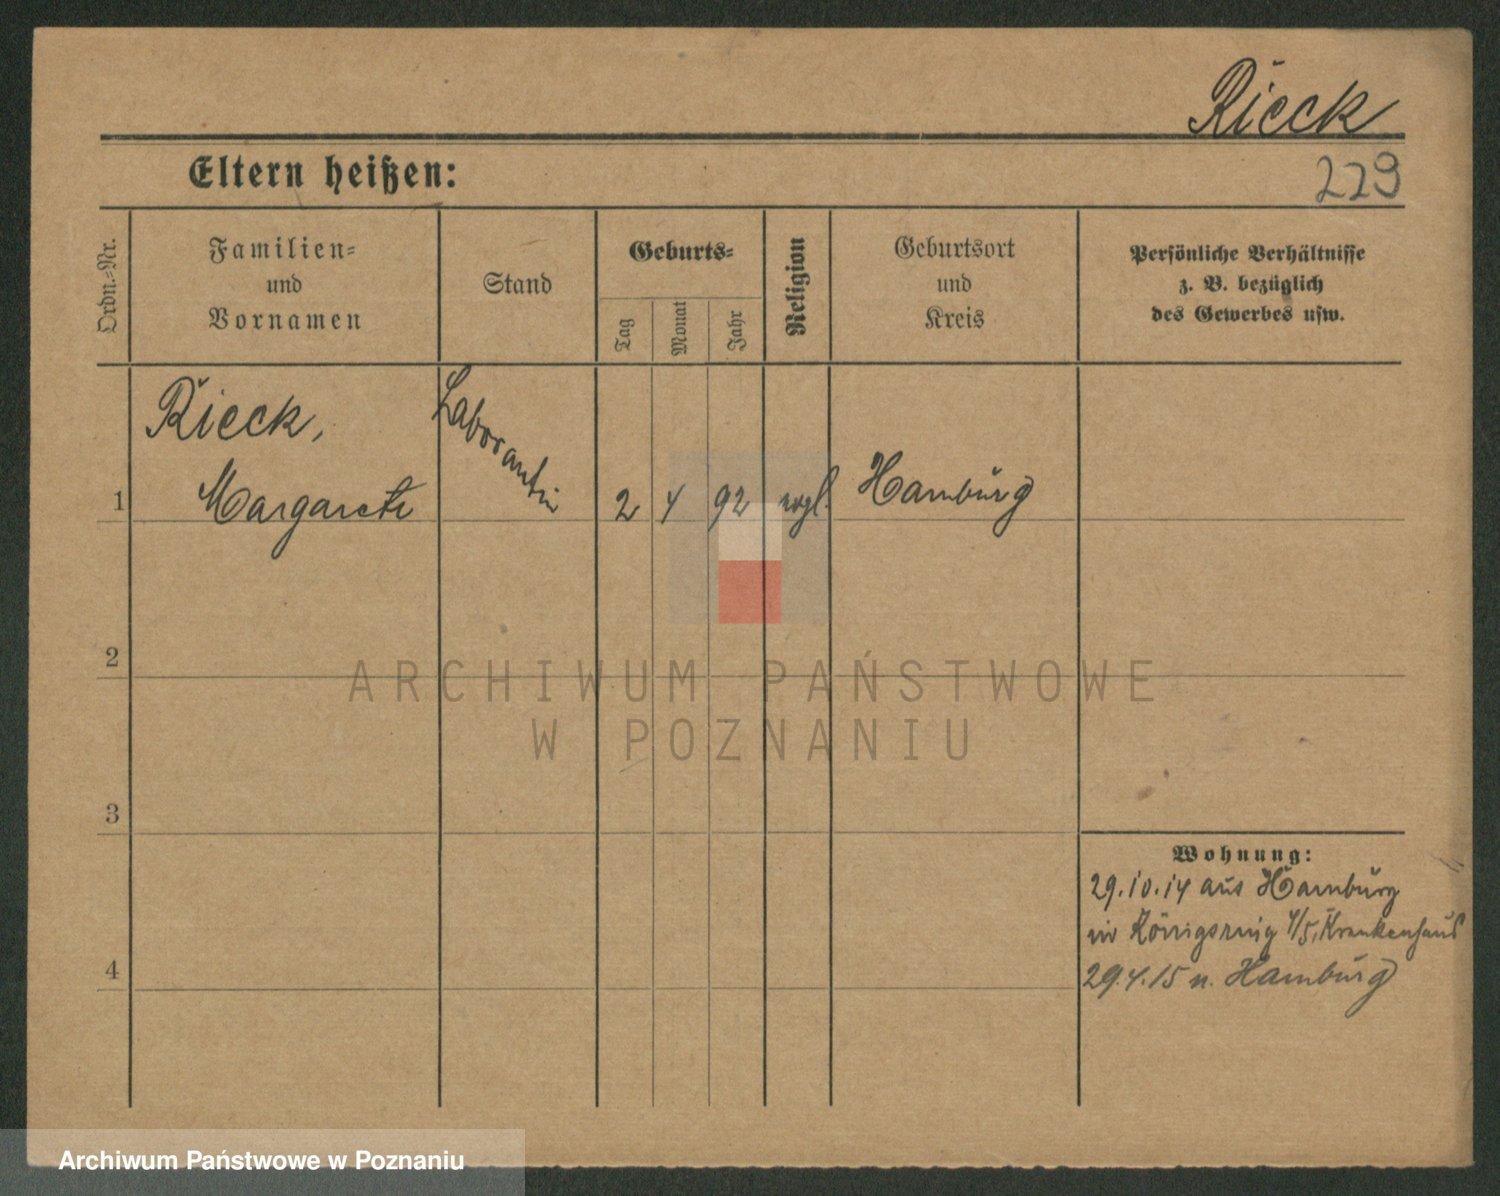 Rieck
229
Eltern heißen:
Ordn.=Nr.
Familien=
und
Vornamen
Stand
Geburts=
Tag
Monat
Jahr
Religion
Geburtsort
und
Kreis
Persönliche Verhältnisse
z. B. bezüglich
des Gewerbes usw.
1
Rieck,
Margarete
Laborantin
2 4 92 evgl. Hamburg
2
3
4
Wohnung:
29.10.14 aus Hamburg
in Königsring 4/5, Krankenhaus
29.4.15 n. Hamburg
ARCHIWUM PAŃSTWOWE
W POZNANIU
Archiwum Państwowe w Poznaniu